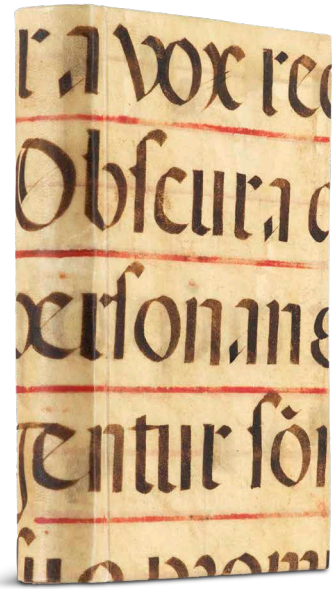 ra vox re
Obſcura
perſonans
gentur ſōn